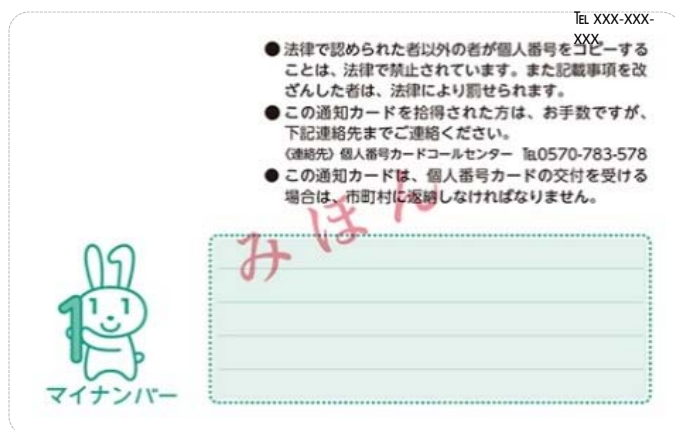 TEL XXX-XXX-
XXX
●法律で認められた者以外の者が個人番号をコピーする
ことは、法律で禁止されています。また記載事項を改
ざんした者は、法律により罰せられます。
●この通知カードを拾得された方は、お手数ですが、
下記連絡先までご連絡ください。
《連絡先》個人番号カードコールセンター ℡0570-783-578
●この通知カードは、個人番号カードの交付を受ける
場合は、市町村に返納しなければなりません。
みほん
1
マイナンバー